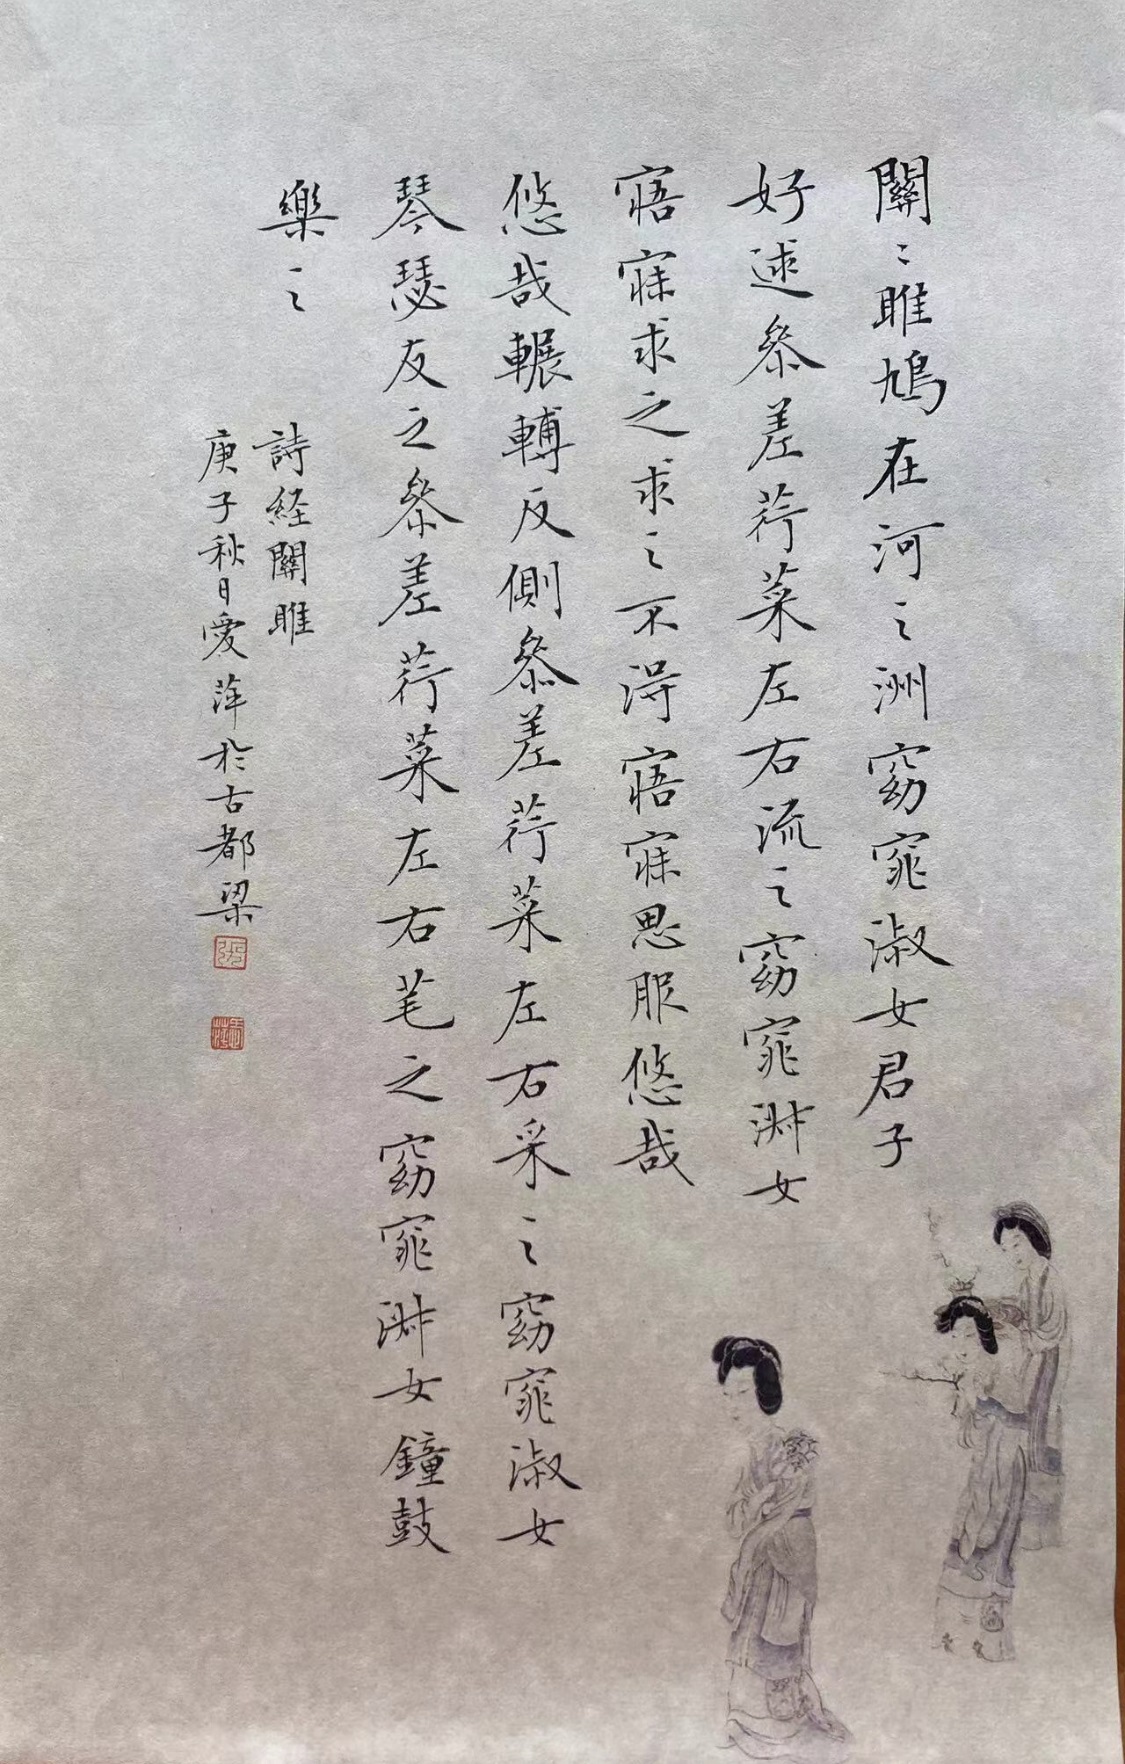 關〻雎鳩在河之洲窈窕淑女君子
好逑叅差荇菜左右流之窈窕淑女
寤寐求之求之不得寤寐思服悠哉
悠哉輾轉反側叅差荇菜左右采之窈窕淑女
琴瑟友之叅差荇菜左右芼之窈窕淑女鐘鼓
樂之
詩経關雎
庚子秋日愛萍於古都梁